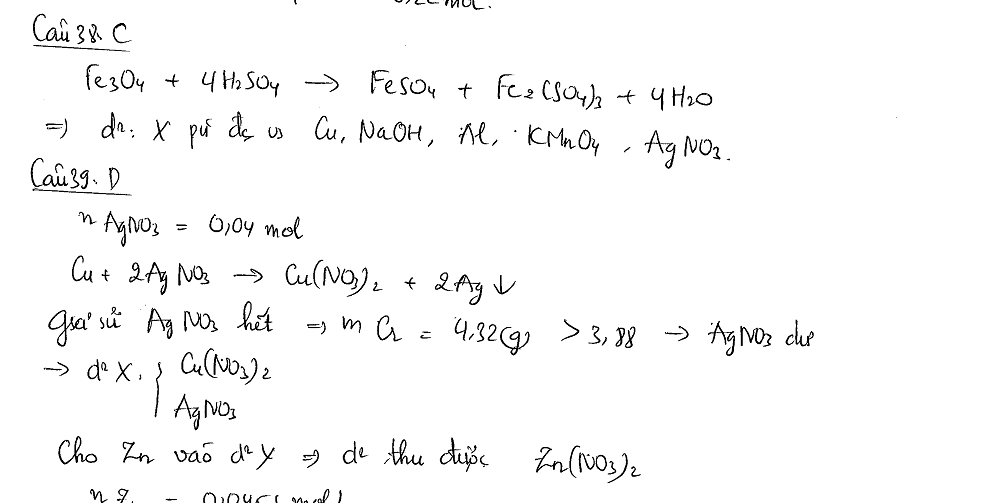 Câu 38. C
Fe3O4 + 4H2SO4 → FeSO4 + Fe2(SO4)3 + 4H2O
=> d²: X pứ đc vs Cu, NaOH, Al, KMnO4, AgNO3.
Câu 39. D
n AgNO3 = 0,04 mol
Cu + 2AgNO3 → Cu(NO3)2 + 2Ag ↓
giả sử AgNO3 hết => m = 4,32(g) > 3,88 → AgNO3 dư
→ d² X. { Cu(NO3)2
AgNO3
Cho Zn vào d² Y => d² thu được Zn(NO3)2